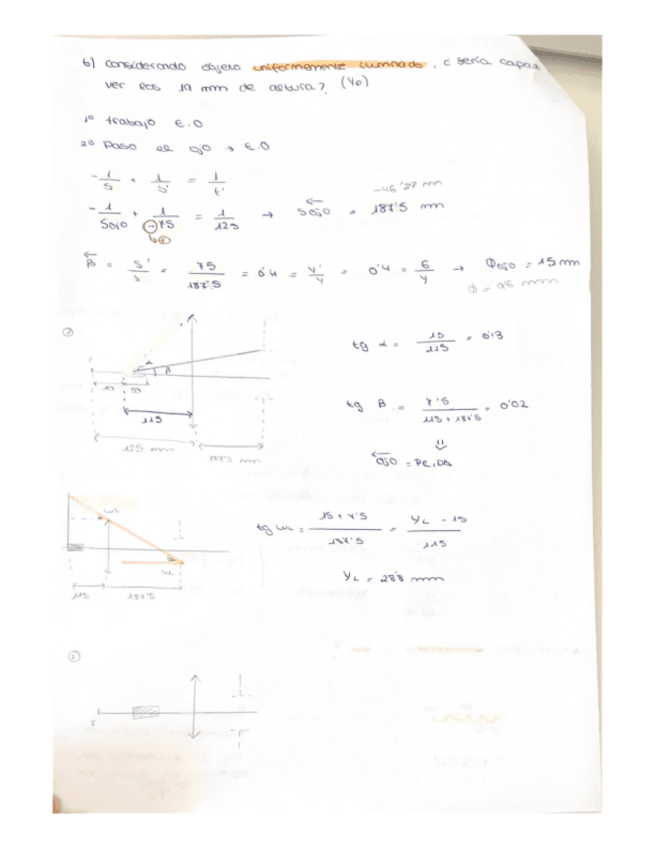 6) Considerando objeto uniformemente iluminado, ¿ sería capaz
ver los 19 mm de altura? (Yo)
1º trabajo E.O
2º Paso el ojo → E.O
-1/S + 1/S' = 1/f'
-1/Sojo + 1/-75 = 1/125 → Sojo = 187'5 mm
B = S'/s = 75/187'5 = 0'4 = y'/y = 0'4 = 6/y → Φojo = 15 mm
tg α = 15/115 = 0'13
α
β
115
125 mm
187'5 mm
tg B = 7'5/115 + 187'5 = 0'02
⇓
ojo = PE, DA
tg ω2 = 15 + 7'5/187'5 = YL - 15/115
115
187'5
YL = 28'8 mm